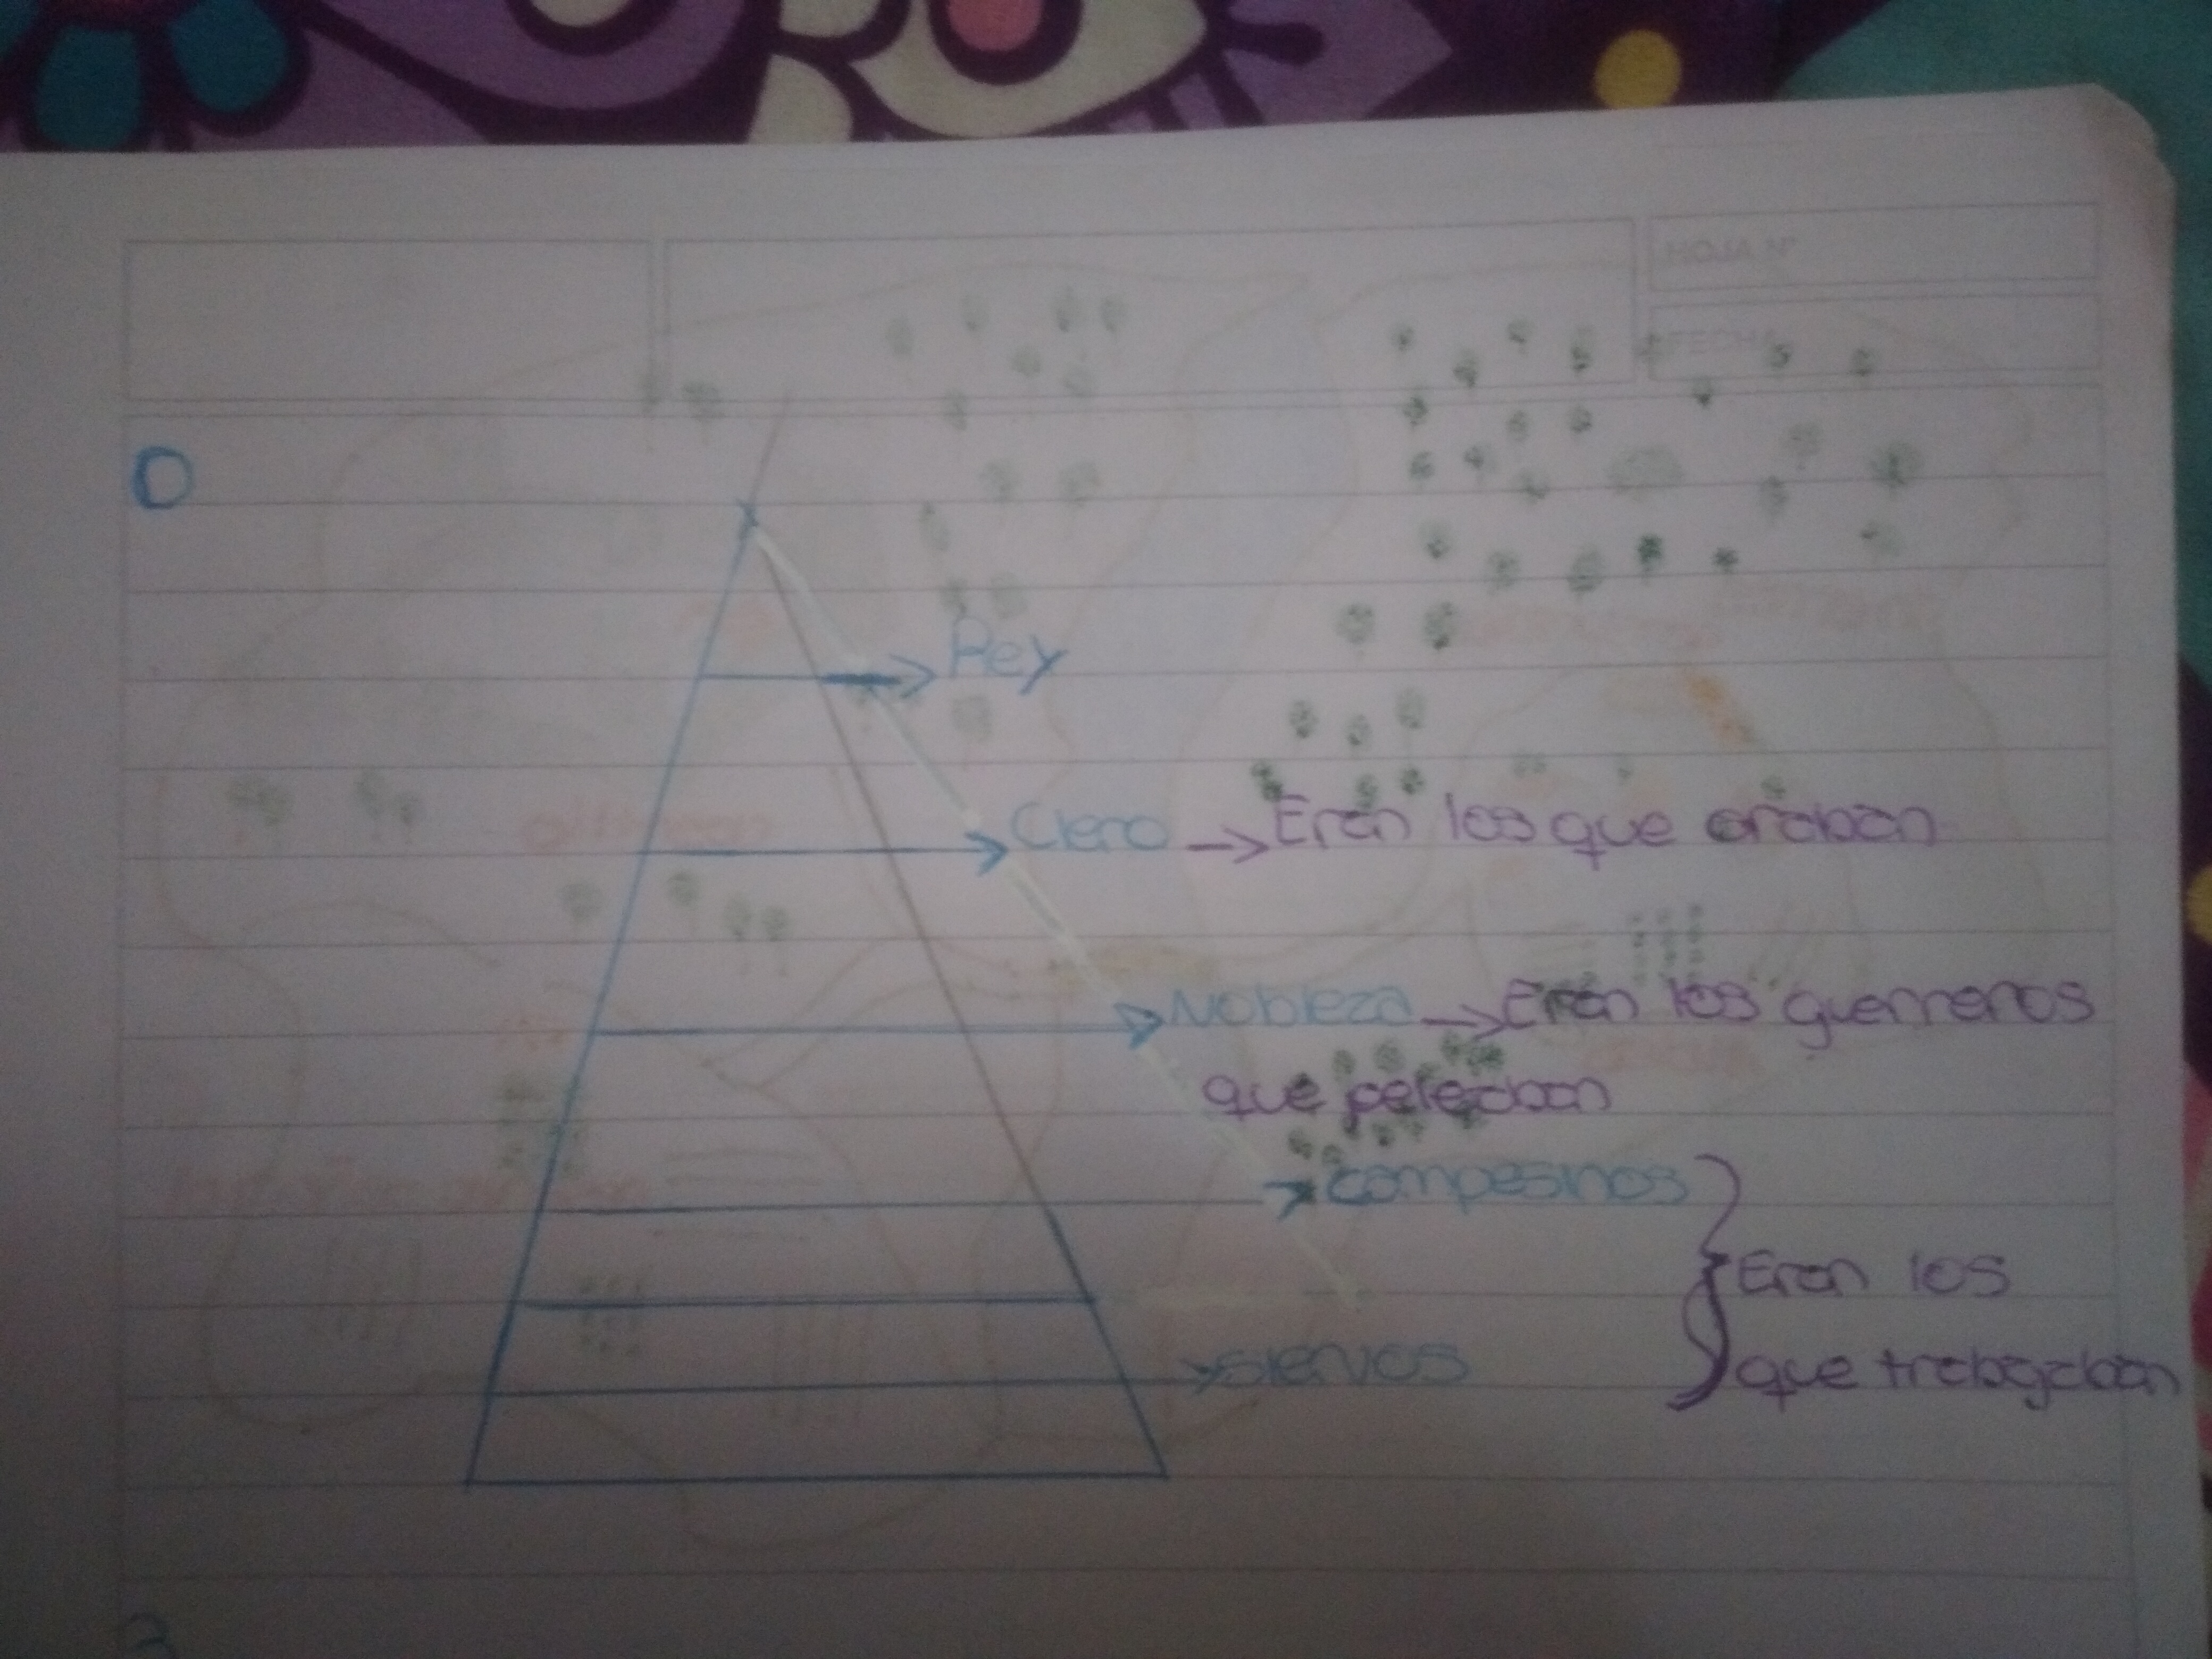 HOJA N°
FECHA
D
Rey
Clero → Eran los que oraban
Nobleza → Eran los guerreros
que peleaban
campesinos
Eran los
siervos
que trabajaban